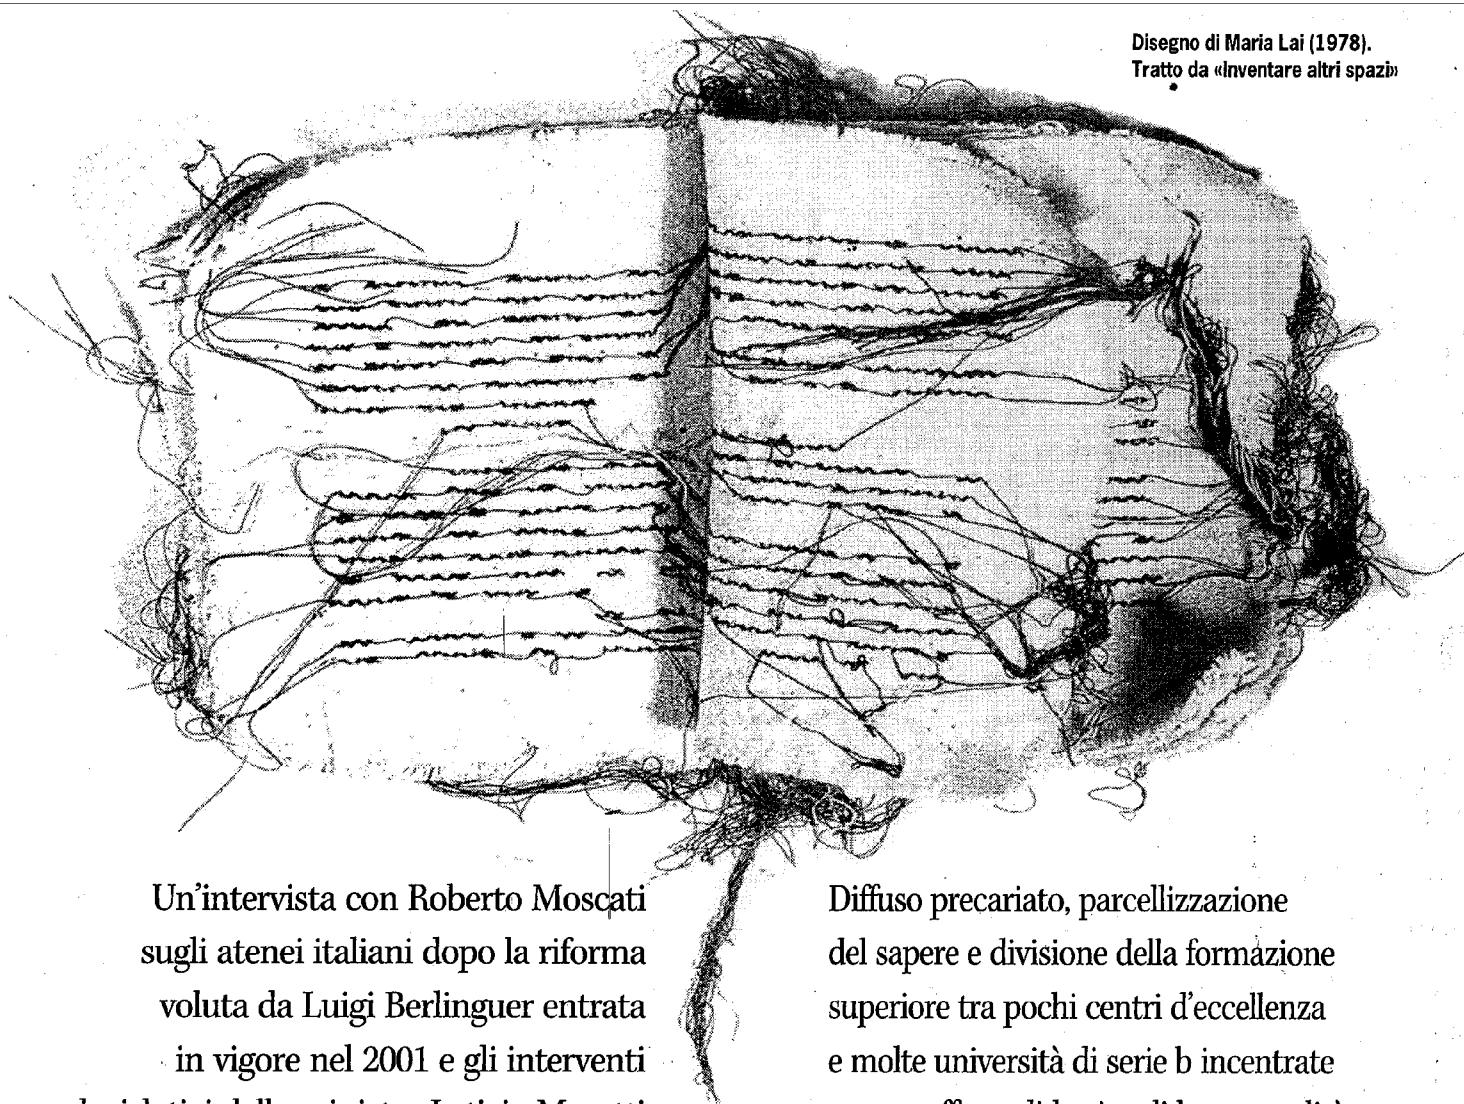 Disegno di Maria Lai (1978).
Tratto da «Inventare altri spazi»
Un'intervista con Roberto Moscati
sugli atenei italiani dopo la riforma
voluta da Luigi Berlinguer entrata
in vigore nel 2001 e gli interventi
Diffuso precariato, parcellizzazione
del sapere e divisione della formazione
superiore tra pochi centri d'eccellenza
e molte università di serie b incentrate